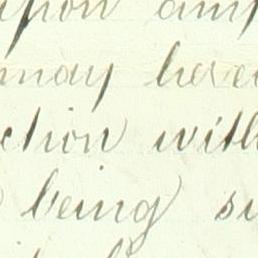 upon any
may here
ction with
being su